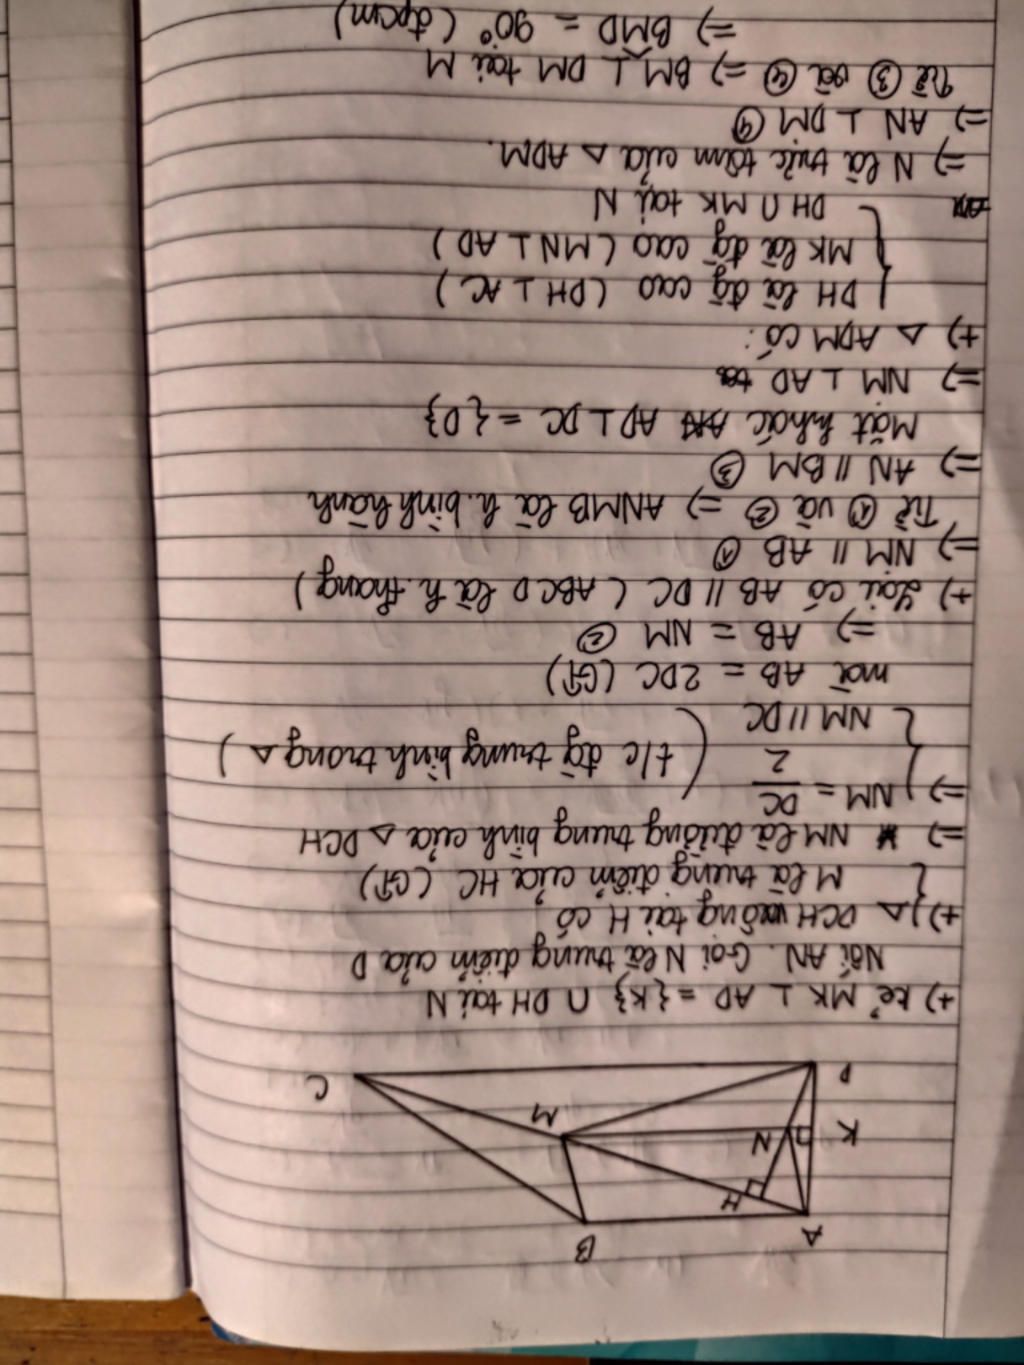 A
B
H
K
N
M
D
C
+) kẻ MK ⊥ AD = {K} ∩ DH tại N
Nối AN. Gọi N là trung điểm của D
+) { △ DCH vuông tại H có
M là trung điểm của HC (GT)
=> NM là đường trung bình của △ DCH
=> { NM = DC/2
NM // DC
(t/c đg trung bình trong △)
mà AB = 2DC (GT)
=> AB = NM ②
+) Lại có AB // DC (ABCD là h. thang)
=> NM // AB ①
Từ ① và ② => ANMB là h. bình hành
=> AN // BM ③
Mặt khác AD ⊥ DC = {D}
=> NM ⊥ AD
+) △ ADM có:
{ DH là đg cao (DH ⊥ AC)
MK là đg cao (MN ⊥ AD)
DH ∩ MK tại N
=> N là trực tâm của △ ADM.
=> AN ⊥ DM ④
Từ ③ và ④ => BM ⊥ DM tại M
=> BMD = 90° (đpcm)